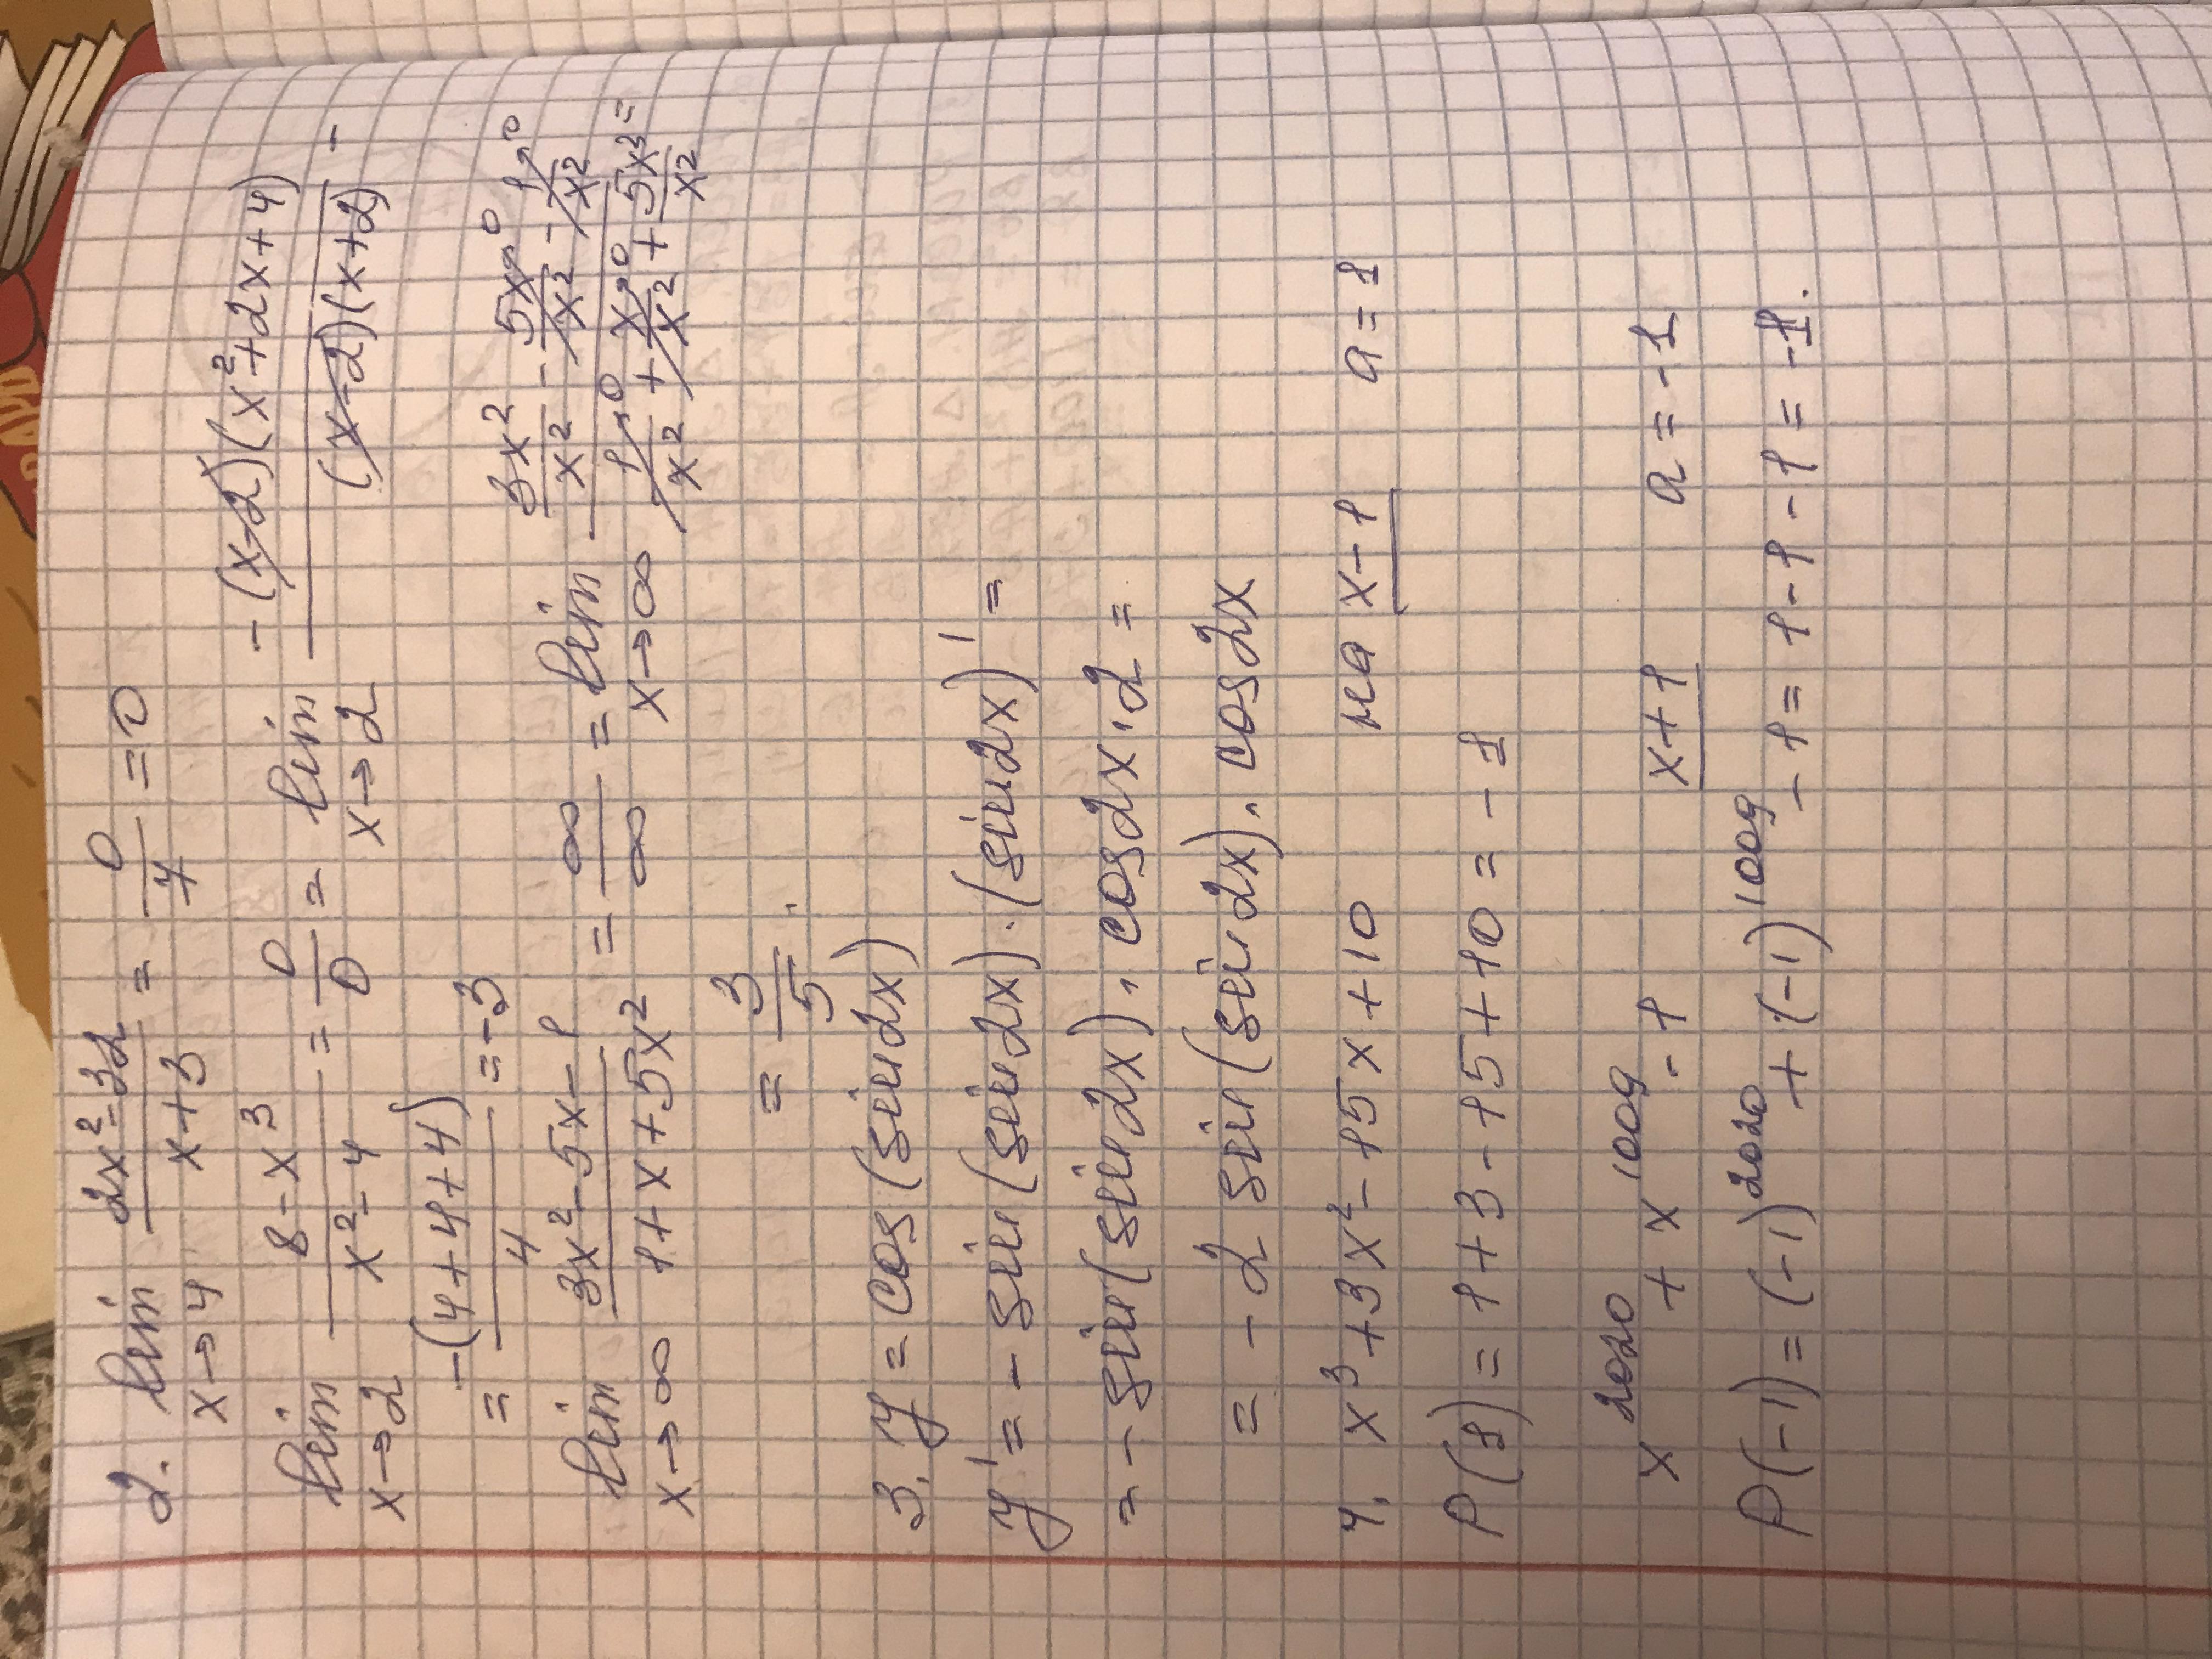 2. lim x→4 (2x² - 32)/(x + 3) = 0/7 = 0
lim x→2 (8 - x³)/(x² - 4) = 0/0 = lim x→2 -(x-2)(x²+2x+4)/((x-2)(x+2)) =
= -(4+4+4)/4 = -3
lim x→∞ (3x² - 5x - 1)/(1 + x + 5x²) = ∞/∞ = lim x→∞ (3x²/x² - 5x/x²→0 - 1/x²→0)/(1/x²→0 + x/x²→0 + 5x²/x²) =
= 3/5.
3. y = cos(sin2x)
y' = - sin(sin2x)·(sin2x)' =
= - sin(sin2x)·cos2x·2 =
= - 2 sin(sin2x)·cos2x
4. x³ + 3x² - 15x + 10 на x - 1 a = 1
P(1) = 1 + 3 - 15 + 10 = - 1
x²⁰²⁰ + x¹⁰⁰⁹ - 1 x + 1 a = - 1
P(-1) = (-1)²⁰²⁰ + (-1)¹⁰⁰⁹ - 1 = 1 - 1 - 1 = -1.